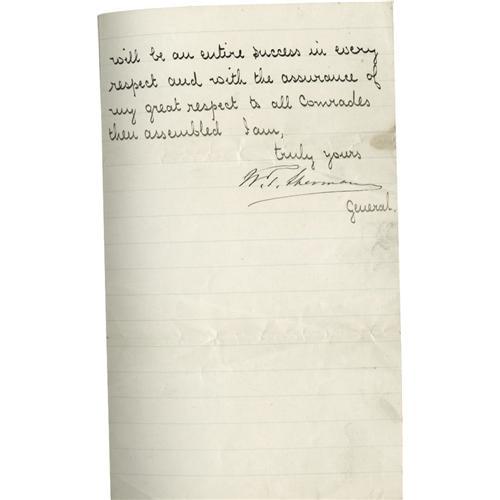 will be an entire success in every
respect and with the assurance of
my great respect to all Comrades
then assembled I am,
truly yours
W. T. Sherman
General.